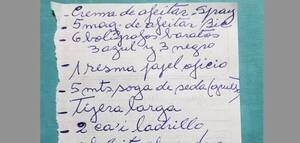 - Crema de afeitar Spray
- 5 maq. de afeitar / Bic
- 6 bolígrafos baratos
3 azul y 3 negro
- 1 resma papel oficio
- 5 mts soga de seda (gruesa)
- Tijera larga
- 2 ca'i ladrillo